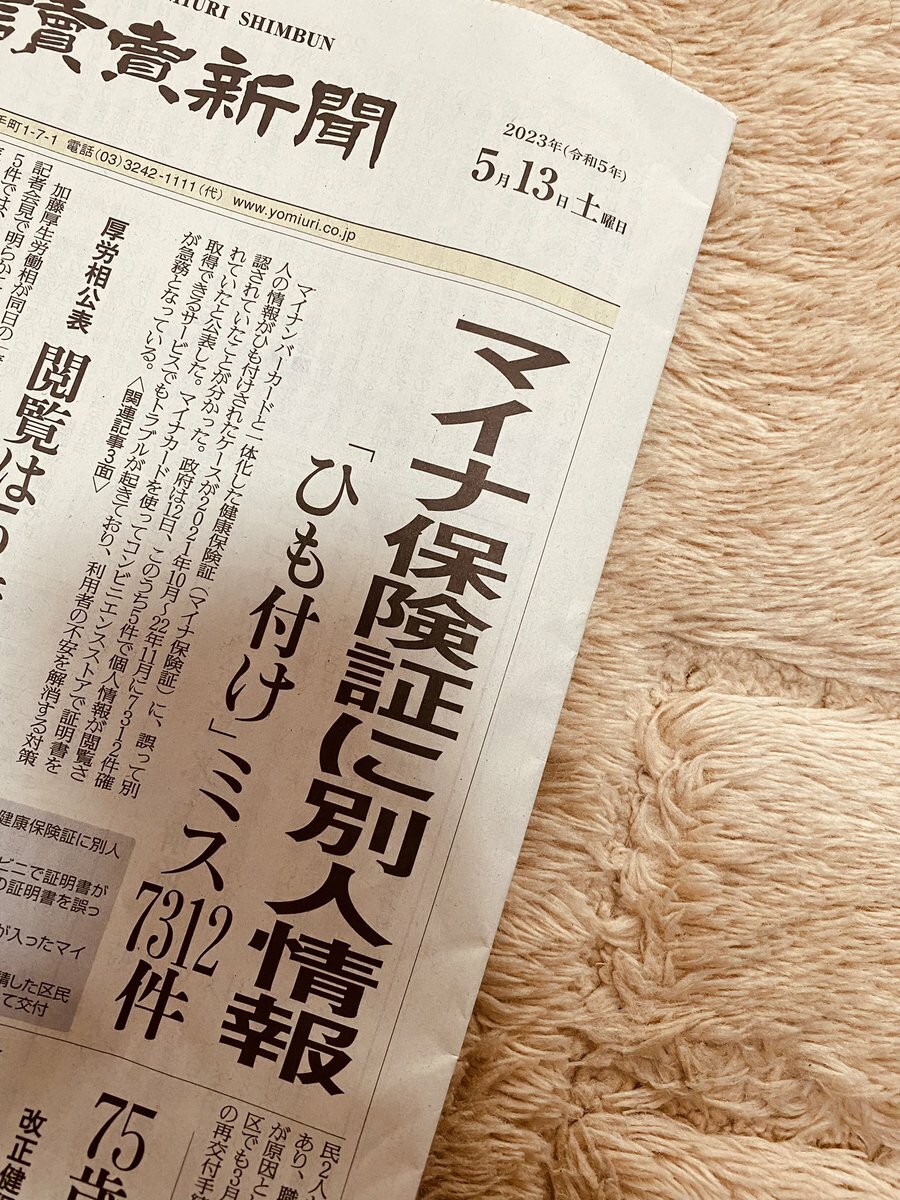 IURI SHIMBUN
讀賣新聞
2023年(令和5年)
5月13日土曜日
手町1-7-1 電話(03)3242-1111(代) www.yomiuri.co.jp
マイナ保険証に別人情報
「ひも付け」ミス7312件
マイナンバーカードと一体化した健康保険証(マイナ保険証)に、誤って別
人の情報がひも付けされたケースが2021年10月～22年11月に7312件確
認されていたことが分かった。政府は12日、このうち5件で個人情報が閲覧さ
れていたと公表した。マイナカードを使ってコンビニエンスストアで証明書を
取得できるサービスでもトラブルが起きており、利用者の不安を解消する対策
が急務となっている。〈関連記事3面〉
厚労相公表
閲覧は
加藤厚生労働相が同日の
記者会見で明らかに
5件では、
健康保険証に別人
ビニで証明書が
の証明書を誤っ
が入ったマイ
請した区民
て交付
民2人
あり、職
が原因と
区でも3月
の再交付手
75歳
改正健